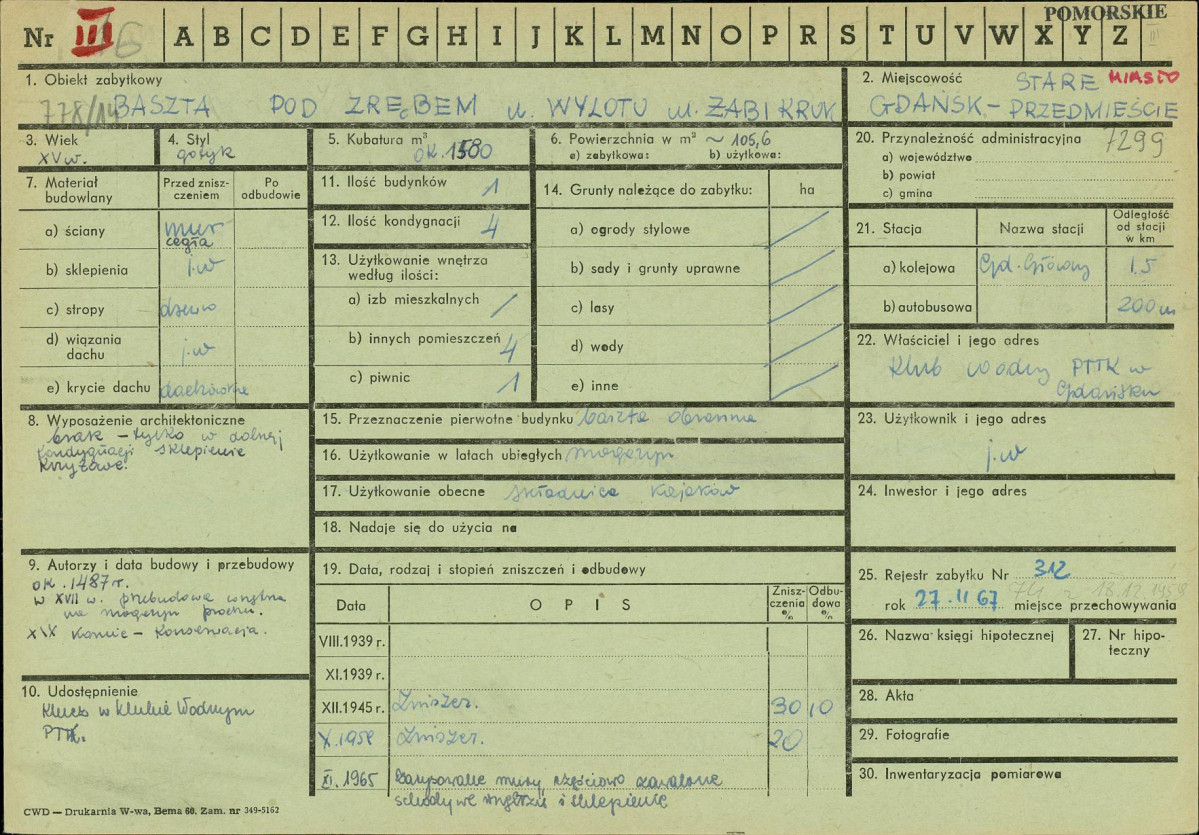 POMORSKIE
Nr III 6 A B C D E F G H I J K L M N O P R S T U V W X Y Z
1. Obiekt zabytkowy
778/14
BASZTA POD ZRĘBEM u WYLOTU ul. ŻABI KRUK
2. Miejscowość STARE MIASTO
GDAŃSK - PRZEDMIEŚCIE
3. Wiek
XV w.
4. Styl
gotyk
5. Kubatura m³
OK. 1580
6. Powierzchnia w m² ~ 105,6
a) zabytkowa: b) użytkowa:
7. Materiał budowlany
Przed zniszczeniem
Po odbudowie
a) ściany mur cegła
b) sklepienia j.w
c) stropy drewno
d) wiązania dachu j.w
e) krycie dachu dachówka
8. Wyposażenie architektoniczne
brak - tylko w dolnej
kondygnacji sklepienie
krzyżowe.
9. Autorzy i data budowy i przebudowy
OK. 1487 r.
w XVII w. przebudowa wnętrza
na magazyn prochu.
XIX koniec - konserwacja.
10. Udostępnienie
Klucz w Klubie Wodnym
PTTK.
11. Ilość budynków 1
12. Ilość kondygnacji 4
13. Użytkowanie wnętrza
według ilości:
a) izb mieszkalnych /
b) innych pomieszczeń 4
c) piwnic 1
14. Grunty należące do zabytku: ha
a) ogrody stylowe /
b) sady i grunty uprawne /
c) lasy /
d) wody /
e) inne /
15. Przeznaczenie pierwotne budynku baszta obronna
16. Użytkowanie w latach ubiegłych magazyn
17. Użytkowanie obecne składnica kajaków
18. Nadaje się do użycia na
19. Data, rodzaj i stopień zniszczeń i odbudowy
Data OPIS Zniszczenia % Odbudowa %
VIII.1939 r.
XI.1939 r.
XII.1945 r. Zniszcz. 30 10
X.1958 Zniszcz. 20
XI.1965 mury częściowo zawalone
schody we wnętrzu i sklepienie
20. Przynależność administracyjna 7299
a) województwo
b) powiat
c) gmina
21. Stacja Nazwa stacji Odległość od stacji w km
a) kolejowa Gd. Główny 1.5
b) autobusowa 200 m
22. Właściciel i jego adres
Klub wodny PTTK w
Gdańsku
23. Użytkownik i jego adres
j.w
24. Inwestor i jego adres
25. Rejestr zabytku Nr 312
rok 27.II 67 miejsce przechowywania
26. Nazwa księgi hipotecznej
27. Nr hipoteczny
28. Akta
29. Fotografie
30. Inwentaryzacja pomiarowa
CWD — Drukarnia W-wa, Bema 60. Zam. nr 349-5162